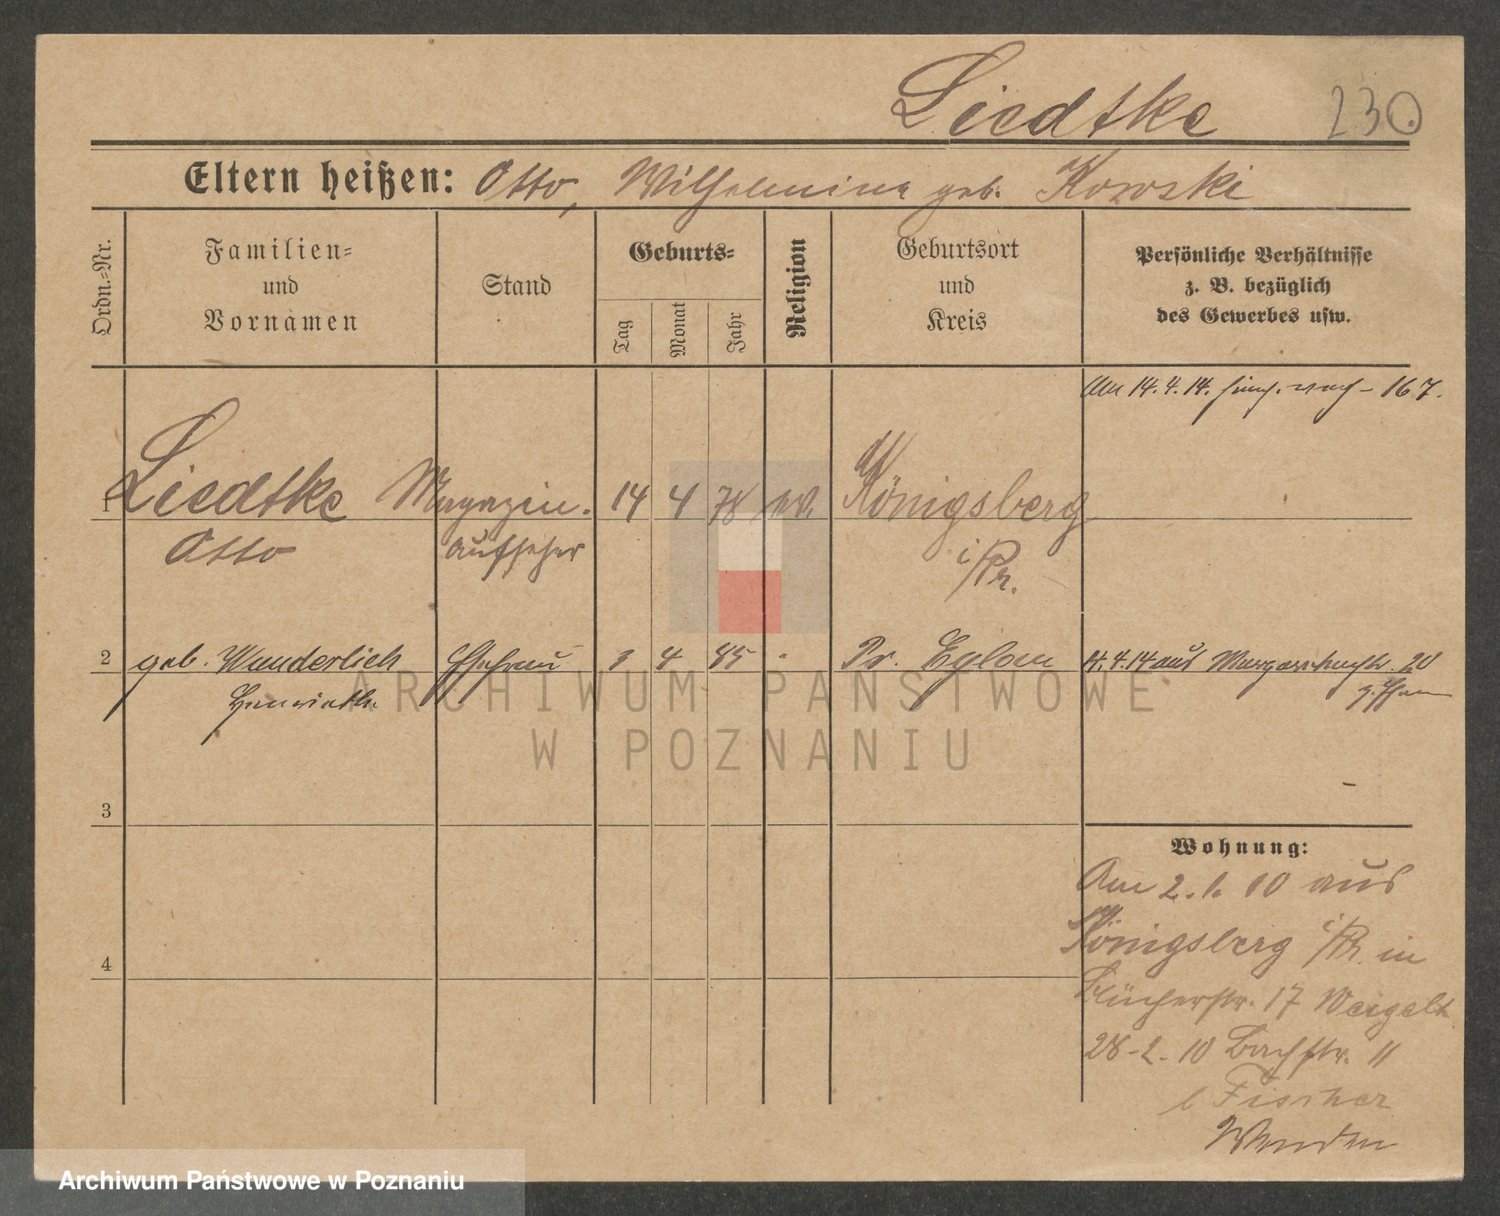 Liedtke 230
Eltern heißen: Otto, Wilhelmine geb. Kowski
Ordn.-Nr.
Familien-
und
Vornamen
Stand
Geburts-
Tag
Monat
Jahr
Religion
Geburtsort
und
Kreis
Persönliche Verhältnisse
z. B. bezüglich
des Gewerbes usw.
Am 14.4.14. 167.
1 Liedtke Magazin- 14 4 78 ev. Königsberg
Otto aufseher i/Pr.
2 geb. Wunderlich Ehefrau 3 4 85 " Pr. Eylau 4.14 aus 20
Henriette
3
4
Wohnung:
Am 2.1.10 aus
Königsberg i/Pr. in
17 Weigelt
28-2.10 Bachstr. 11
Fischer
Wenden
ARCHIWUM PAŃSTWOWE
W POZNANIU
Archiwum Państwowe w Poznaniu